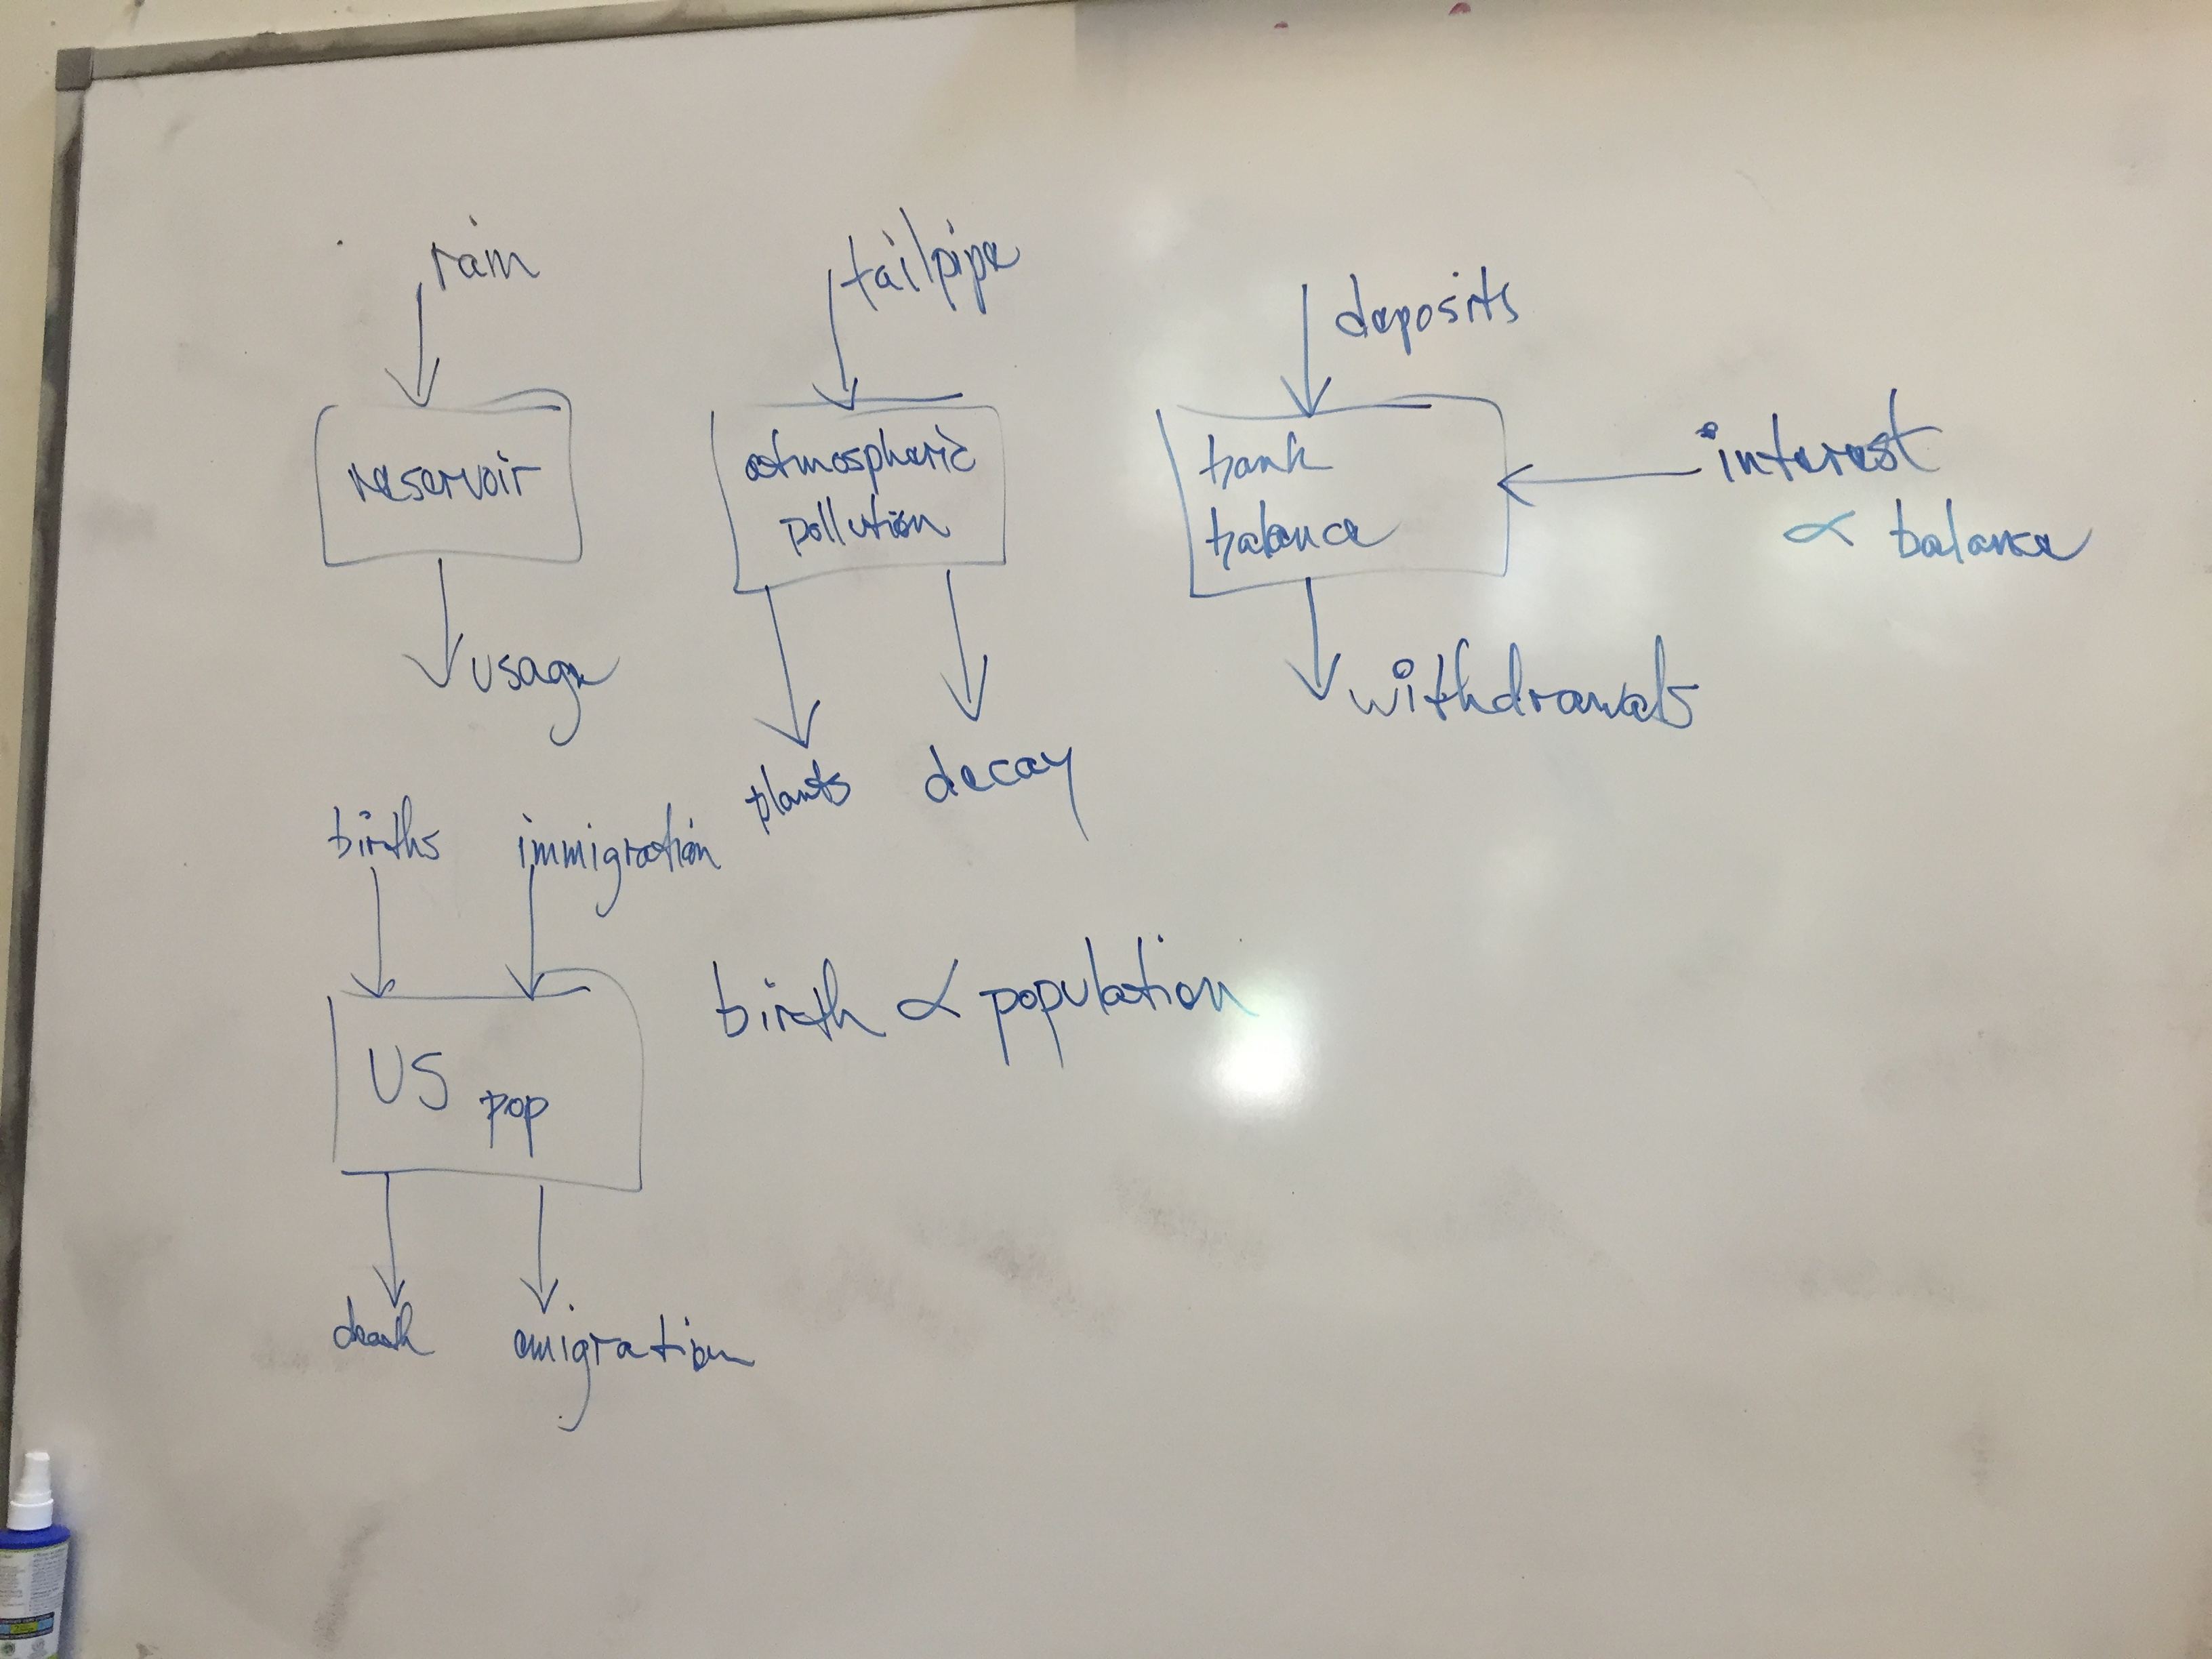 rain
reservoir
usage
tailpipe
atmospheric
pollution
plants
decay
deposits
bank
balance
interest
∝ balance
withdrawals
births
immigration
US pop
death
emigration
birth ∝ population